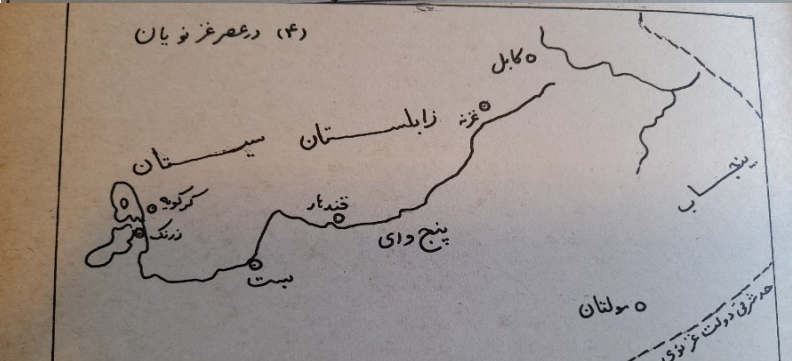 (۴) در عصر غزنویان
کابل
غزنه
زابلستان
سیستان
پنجاب
کرکویه
زرنگ
قندهار
پنج وای
بست
مولتان
حد شرقی دولت غزنوی